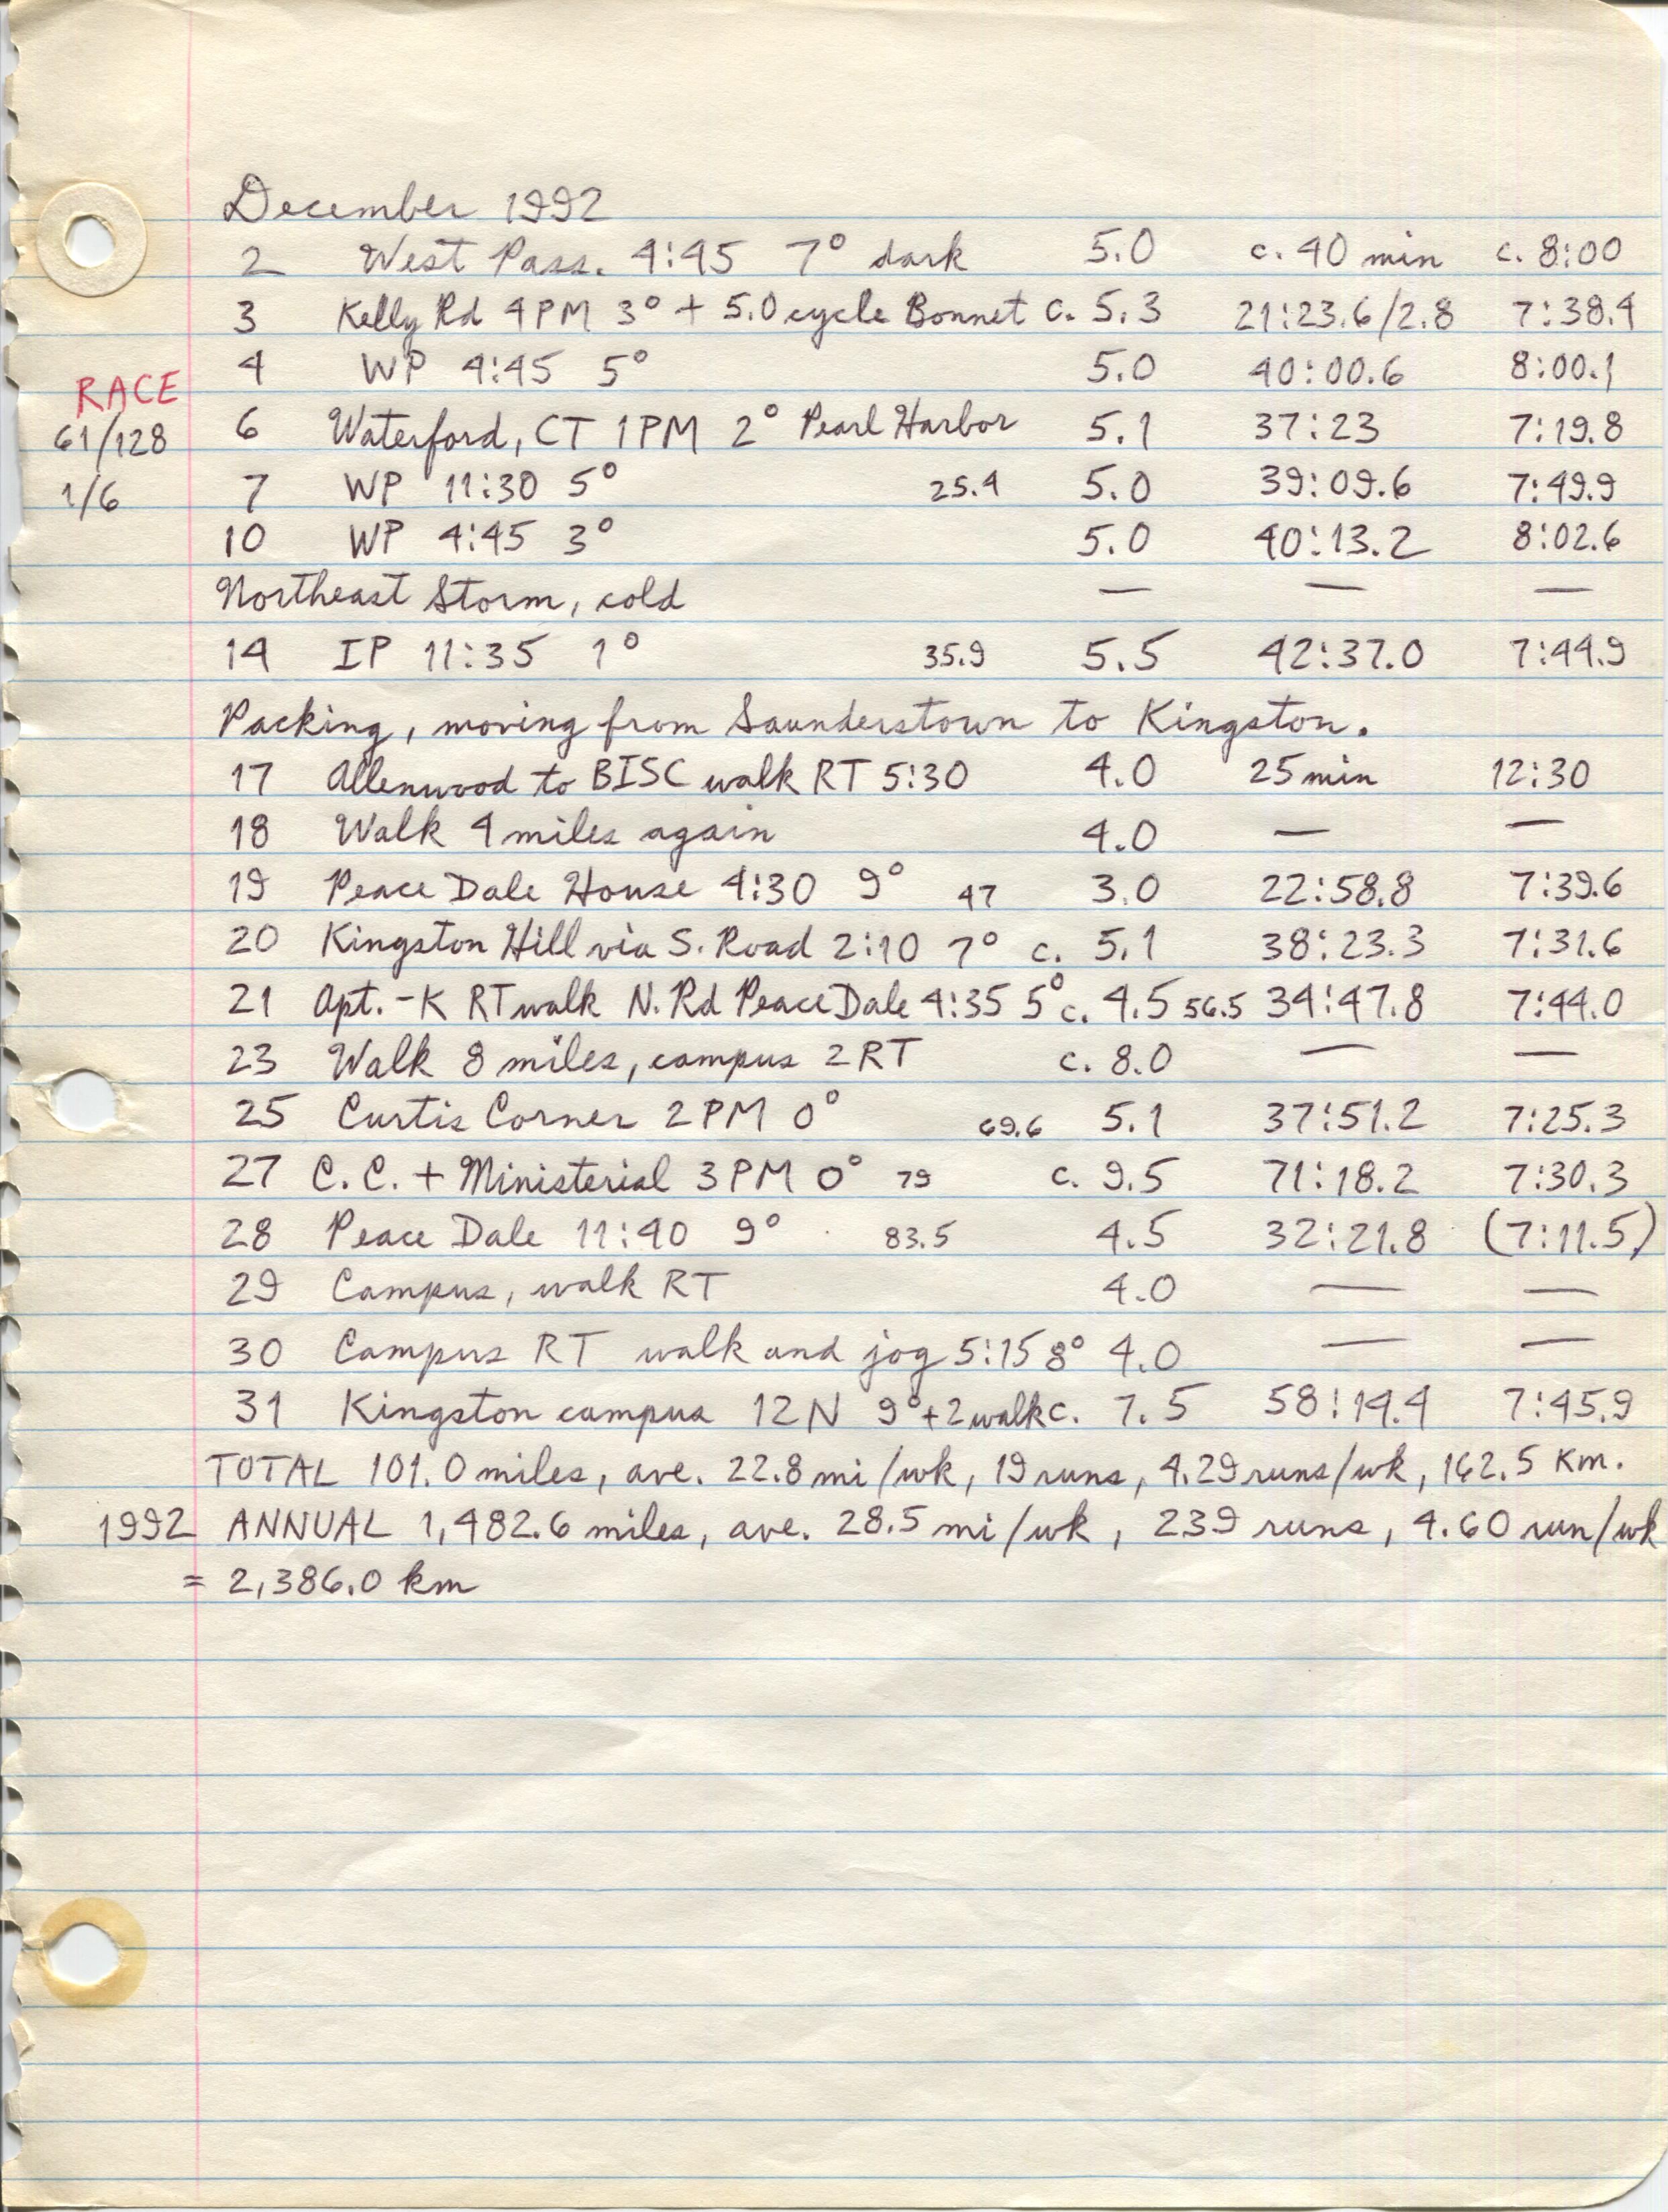 December 1992
2 West Pass. 4:45 7° dark 5.0 c. 40 min c. 8:00
3 Kelly Rd 4PM 3° + 5.0 cycle Bonnet c. 5.3 21:23.6/2.8 7:38.4
4 WP 4:45 5° 5.0 40:00.6 8:00.1
RACE
61/128 6 Waterford, CT 1PM 2° Pearl Harbor 5.1 37:23 7:19.8
1/6 7 WP 11:30 5° 25.4 5.0 39:09.6 7:49.9
10 WP 4:45 3° 5.0 40:13.2 8:02.6
Northeast Storm, cold — — —
14 IP 11:35 1° 35.9 5.5 42:37.0 7:44.9
Packing, moving from Saunderstown to Kingston.
17 Allenwood to BISC walk RT 5:30 4.0 25 min 12:30
18 Walk 4 miles again 4.0 — —
19 Peace Dale House 4:30 9° 47 3.0 22:58.8 7:39.6
20 Kingston Hill via S. Road 2:10 7° c. 5.1 38:23.3 7:31.6
21 Apt. - K RT walk N. Rd Peace Dale 4:35 5° c. 4.5 56.5 34:47.8 7:44.0
23 Walk 8 miles, campus 2 RT c. 8.0 — —
25 Curtis Corner 2PM 0° 69.6 5.1 37:51.2 7:25.3
27 C.C. + Ministerial 3PM 0° 79 c. 9.5 71:18.2 7:30.3
28 Peace Dale 11:40 9° 83.5 4.5 32:21.8 (7:11.5)
29 Campus, walk RT 4.0 — —
30 Campus RT walk and jog 5:15 8° 4.0 — —
31 Kingston campus 12N 9° + 2 walk c. 7.5 58:14.4 7:45.9
TOTAL 101.0 miles, ave. 22.8 mi/wk, 19 runs, 4.29 runs/wk, 162.5 Km.
1992 ANNUAL 1,482.6 miles, ave. 28.5 mi/wk, 239 runs, 4.60 run/wk
= 2,386.0 km